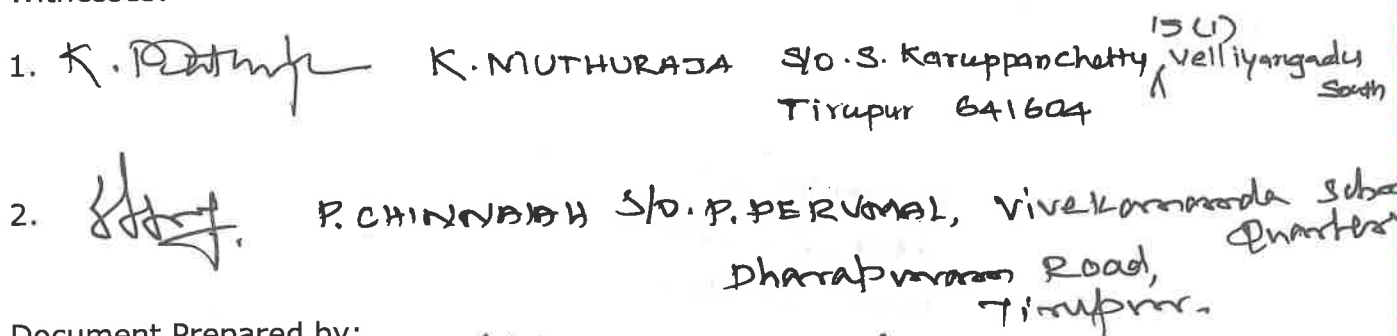 Witnesses:
1. K. MUTHURAJA S/O. S. Karuppanchetty, 15 (1) Velliyangadu South
Tirupur 641604
2. P. CHINNAIAH S/O. P. PERUMAL, Vivekananda
Quarters
Dharapuram Road,
Tirupur.
Document Prepared by: